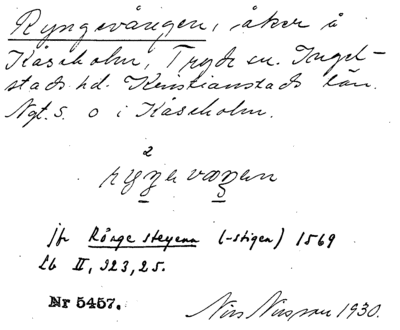 Ryngevången, åker å
Kåseholm, Tryde sn. Ingel-
stads hd. Kristianstads län.
Ngt. S. o i Kåseholm.
2
ryngevangen
jfr Rånge steyenn (-stigen) 1569
Lb II, 323, 25.
Nr 5457.
Nils Nilsson 1930.